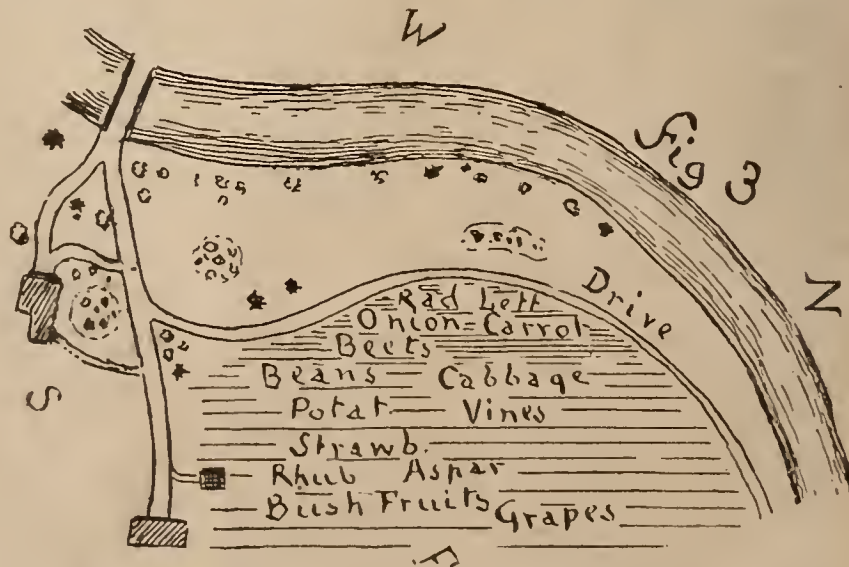 W
Fig 3
N
Drive
Rad Lett
Onion Carrot
Beets
Beans Cabbage
Potat Vines
Strawb.
Rhub Aspar
Bush Fruits Grapes
S
E